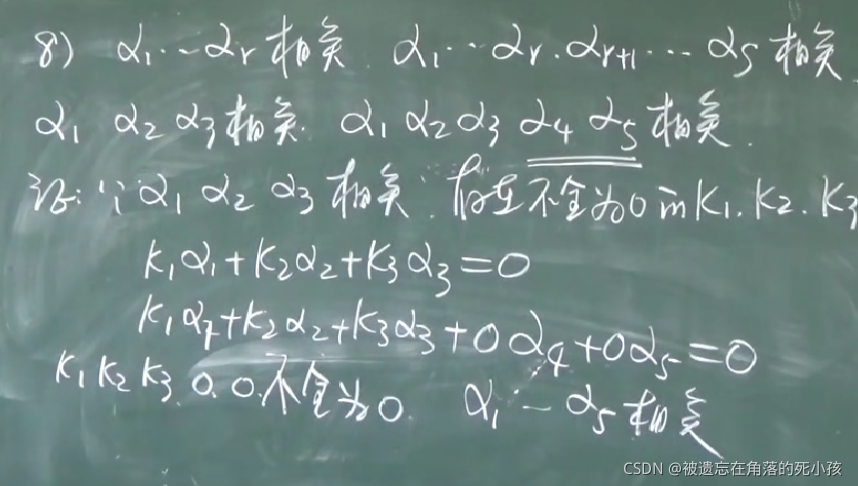 8) α₁…αᵣ相关 α₁…αᵣ.αᵣ₊₁…αₛ相关
α₁ α₂ α₃相关. α₁ α₂ α₃ α₄ α₅ 相关.
证: ∵α₁ α₂ α₃ 相关. 存在不全为0的K₁.K₂.K₃
K₁α₁+K₂α₂+K₃α₃=0
K₁α₁+K₂α₂+K₃α₃+0α₄+0α₅=0
K₁ K₂ K₃.0.0.不全为0. α₁—α₅相关
CSDN @被遗忘在角落的死小孩